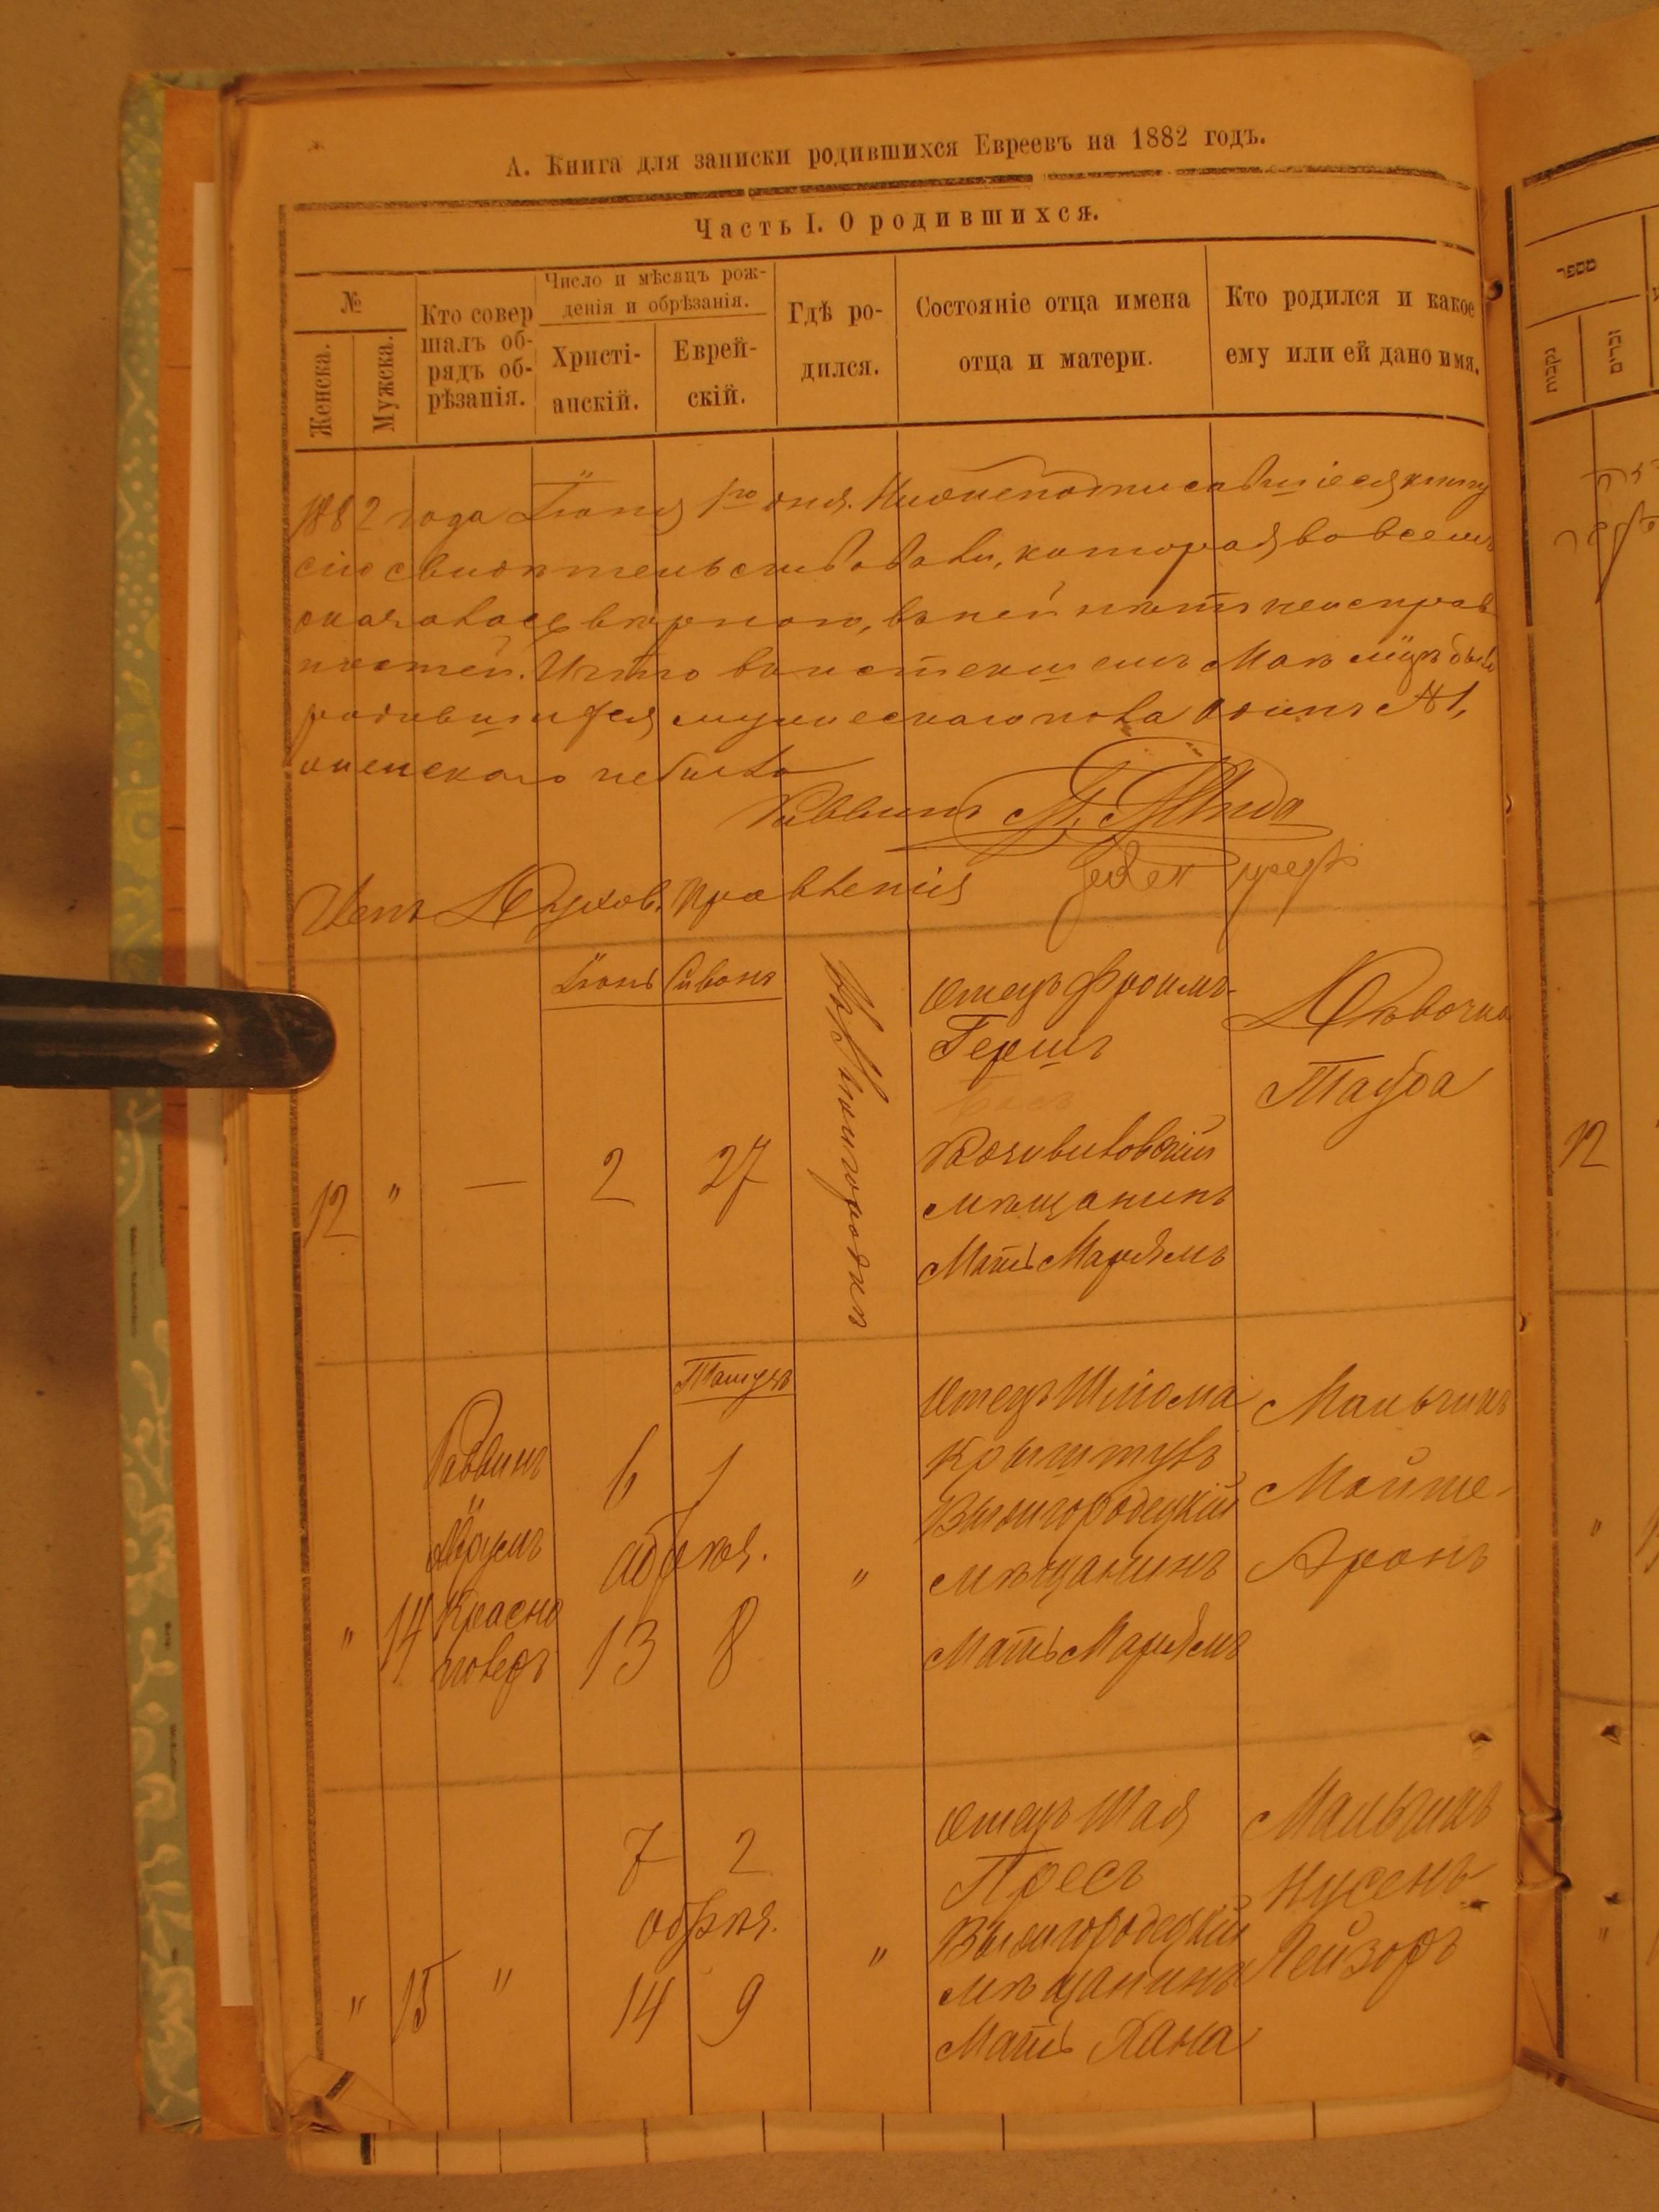 А. Книга для записки родившихся Евреевъ на 1882 годъ.
Часть I. О родившихся.
№
Женска.
Мужска.
Кто совер
шалъ об-
рядъ об-
рѣзанія.
Число и мѣсяцъ рож-
денія и обрѣзанія.
Христі-
анскій.
Еврей-
скій.
Гдѣ ро-
дился.
Состояніе отца имена
отца и матери.
Кто родился и какое
ему или ей дано имя.
1882 года Іюня 1го дня. Нижеподписавшіеся книгу
сію свидѣтельствовали, которая во всемъ
оказалась вѣрною, въ ней нѣтъ неисправ
ностей. Что въ истекшемъ Маѣ м-цѣ было
родившихся мужескаго пола одинъ №1,
женскаго небыло
Раввинъ
Член Духов. Правленія
Іюнь Сивонъ
12 " — 2 27
Отецъ Фроимъ-
Гершъ
мѣщанинъ
Мать Маріямъ
Дѣвочка
Тауба
Тамузъ
" 14
Раввинъ
Абрумъ
Красно
6 1
обрѣз.
13 8
"
Отецъ Шліома
Вышгородецкій
мѣщанинъ
Мать Маріямъ
Мальчикъ
Мойше-
Аронъ
" 15 "
7 2
обрѣз.
14 9
"
Отецъ Шая
Пресъ
Вышгородецкій
мѣщанинъ
Мать Хана
Мальчикъ
Нусенъ-
Лейзоръ
מספר
נקבות
זכרים
12
"
"